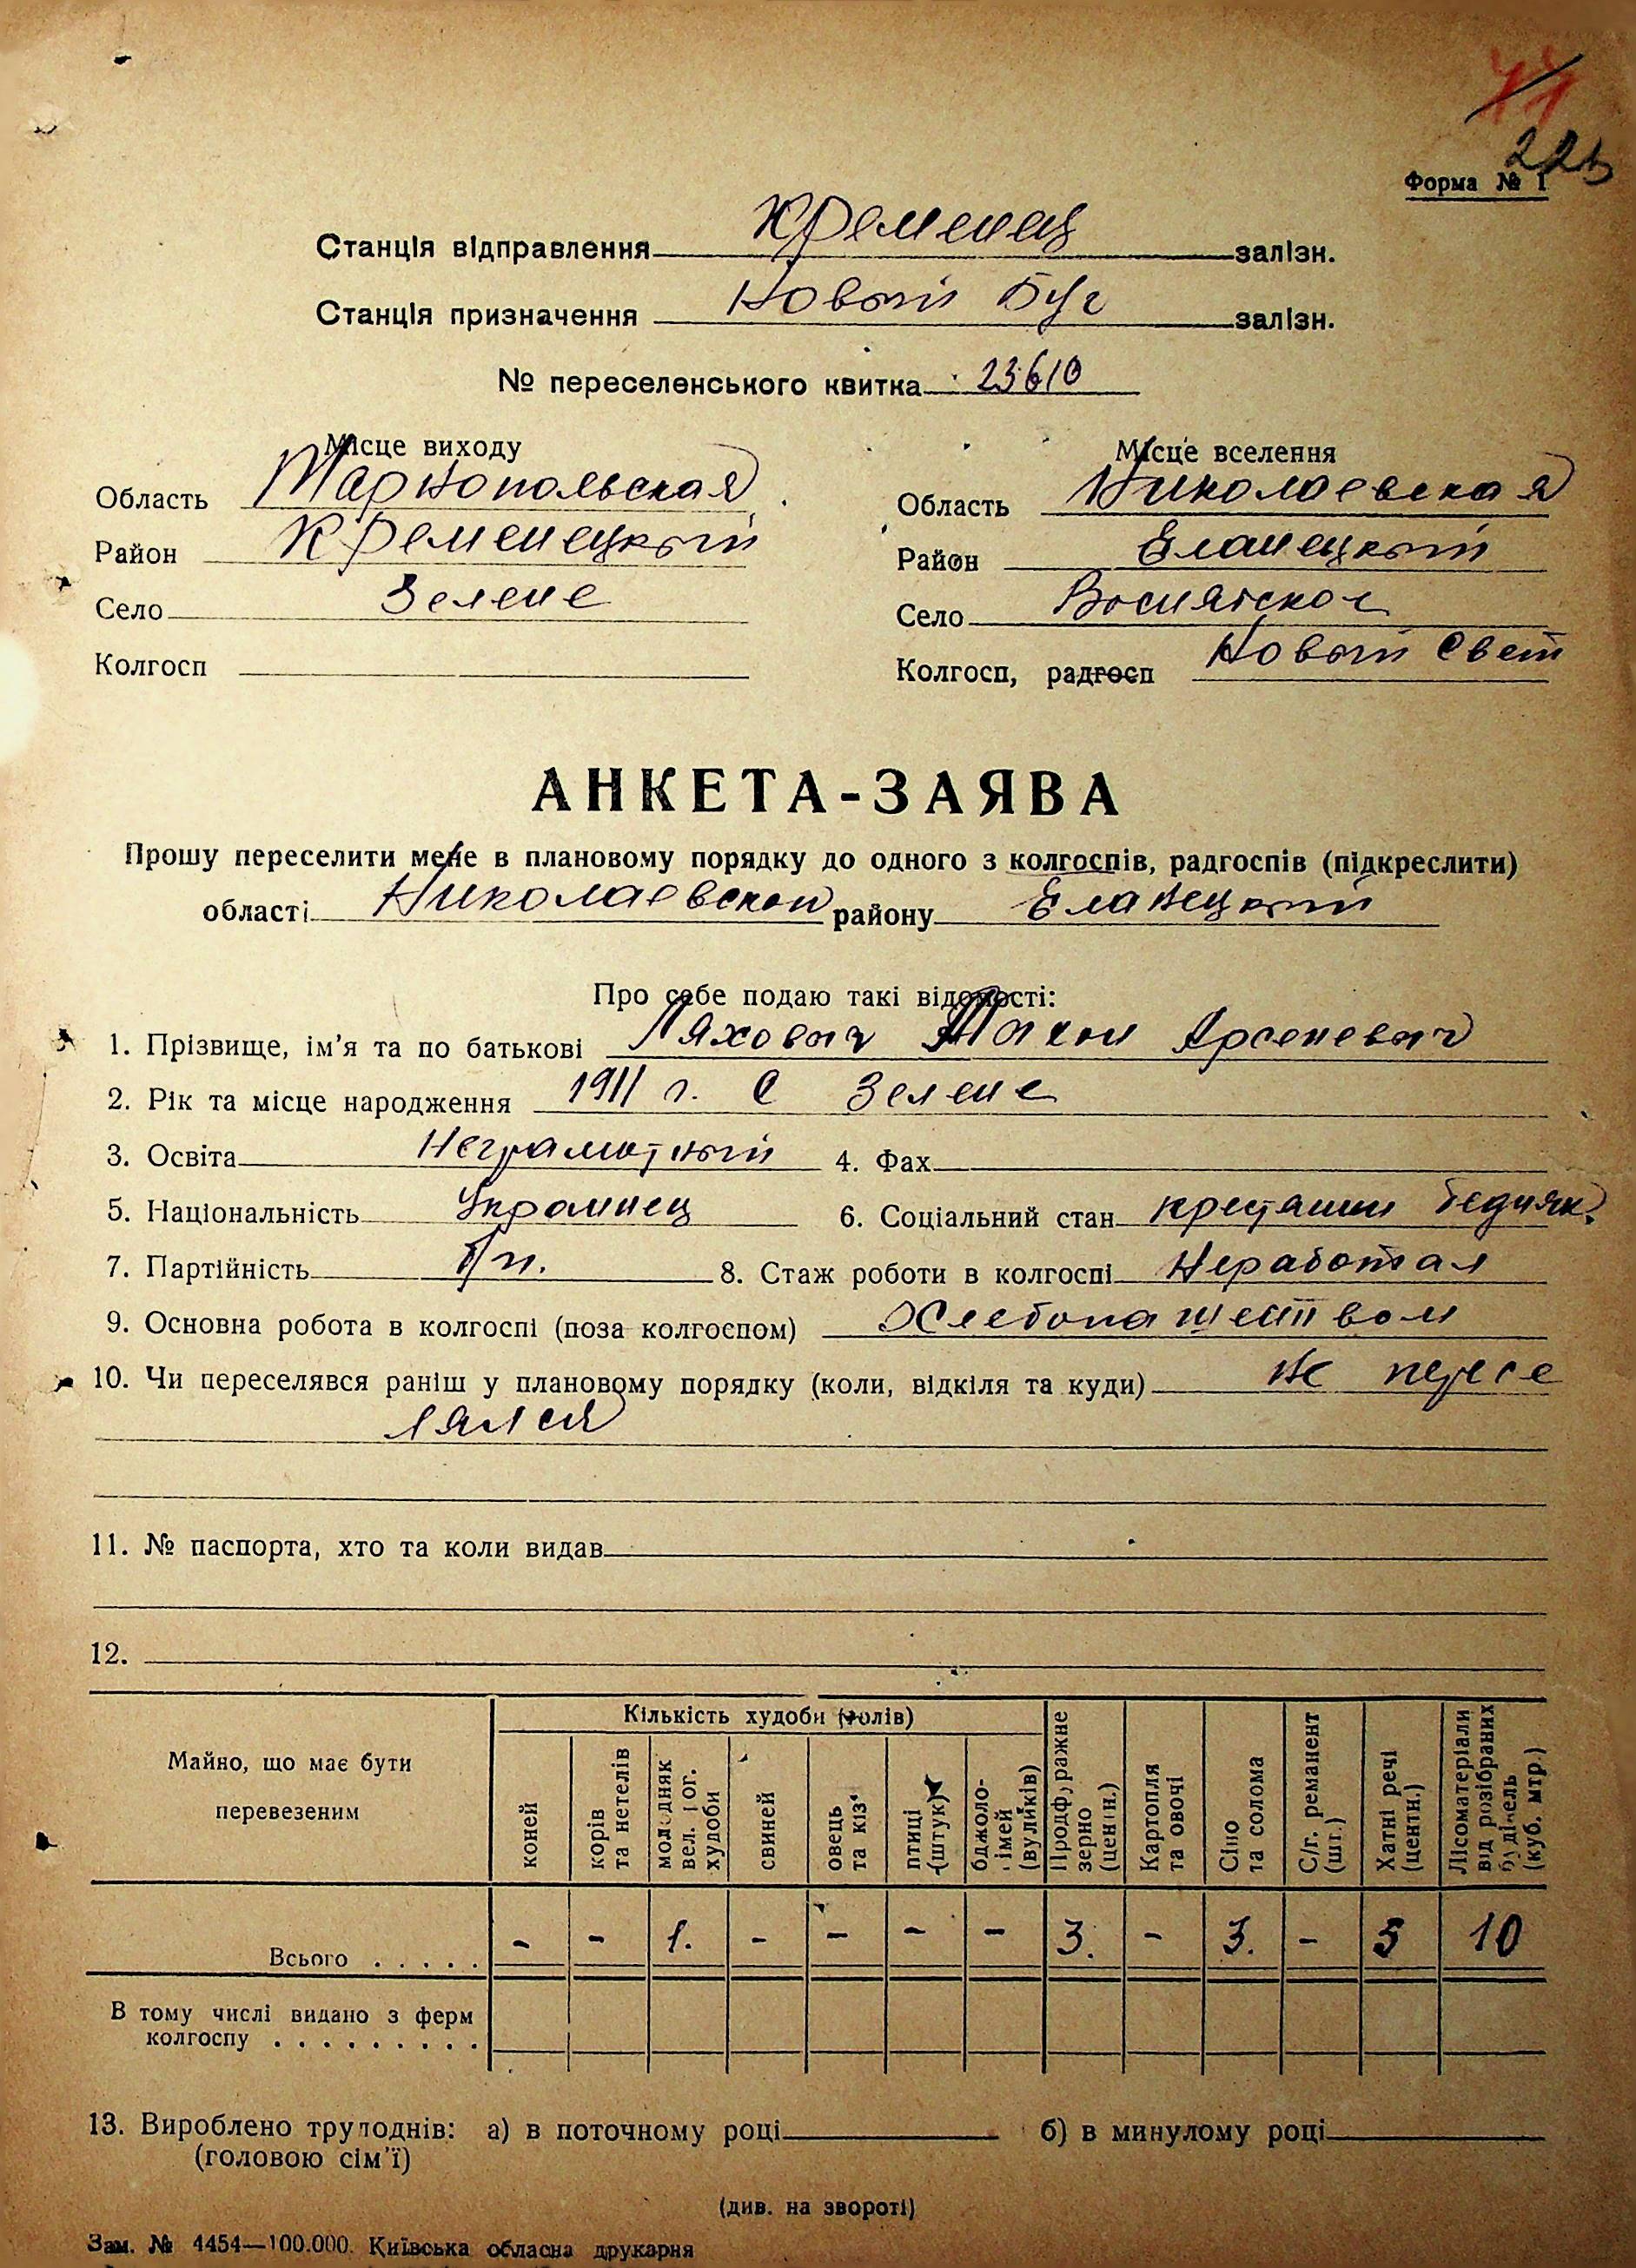 44
223
Форма № 1
Станція відправлення Кременец залізн.
Станція призначення Новый Буг залізн.
№ переселенського квитка 23610
Місце виходу Місце вселення
Область Тарнопольская Область Николаевская
Район Кременецкый Район Еланецкый
Село Зелене Село Вознятское
Колгосп Колгосп, радгосп Новый Свет
АНКЕТА-ЗАЯВА
Прошу переселити мене в плановому порядку до одного з колгоспів, радгоспів (підкреслити)
області Николаевской району Еланецкый
Про себе подаю такі відомості:
1. Прізвище, ім'я та по батькові Ляхович Арсеневич
2. Рік та місце народження 1911 г. С Зелене
3. Освіта Неграмотный 4. Фах
5. Національність Украинец 6. Соціальний стан бедняк.
7. Партійність б/п. 8. Стаж роботи в колгоспі Неработал
9. Основна робота в колгоспі (поза колгоспом) Хлебопашеством
10. Чи переселявся раніш у плановому порядку (коли, відкіля та куди) Не пересе
лялся
11. № паспорта, хто та коли видав
12.
Майно, що має бути перевезеним
Кількість худоби (голів)
коней
корів та нетелів
молодняк вел. рог. худоби
свиней
овець та кіз
птиці (штук)
бджоло-імей (вуликів)
Продф, ражне зерно (центн.)
Картопля та овочі
Сіно та солома
С/г. реманент (шт.)
Хатні речі (центн.)
Лісоматеріали від розібраних будівель (куб. мтр.)
Всього . . . . . - - 1. - - - - 3. - 3. - 5 10
В тому числі видано з ферм
колгоспу . . . . . . . . .
13. Вироблено трудоднів: а) в поточному році б) в минулому році
(головою сім'ї)
(див. на звороті)
Зам. № 4454—100.000. Київська обласна друкарня